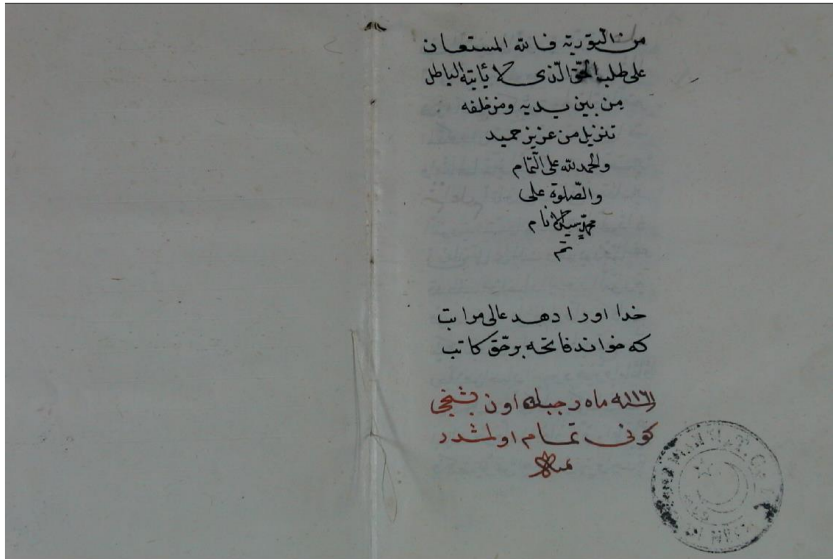 من التورية فالله المستعان
على طلب الحق الذى لا يأتيه الباطل
من بين يديه ومن خلفه
تنزيل من عزيز حميد
والحمد لله على التمام
والصلوة على
محمد سيد الانام
تم
خدا اورا دهد عالى مراتب
كه خواند فاتحه بر حق كاتب
١١٦١ سنه ماه رجبك اون بشنجى
كونى تمام اولمشدر